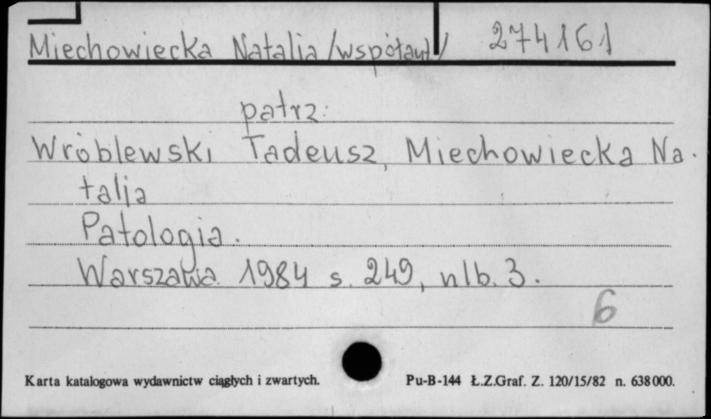 Miechowiecka Natalia /współaut/ 274161
patrz:
Wróblewski Tadeusz, Miechowiecka Na-
talia
Patologia.
Warszawa 1984 s. 249, nlb. 3.
6
Karta katalogowa wydawnictw ciągłych i zwartych. Pu-B-144 Ł.Z.Graf. Z. 120/15/82 n. 638000.